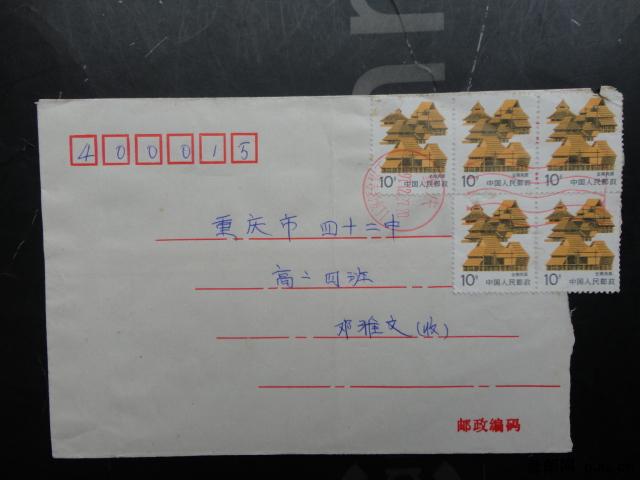 400015
10分
中国人民邮政
10分
中国人民邮政
10分
中国人民邮政
10分
中国人民邮政
10分
中国人民邮政
重庆市 四十二中
高二四班
邓雅文(收)
邮政编码